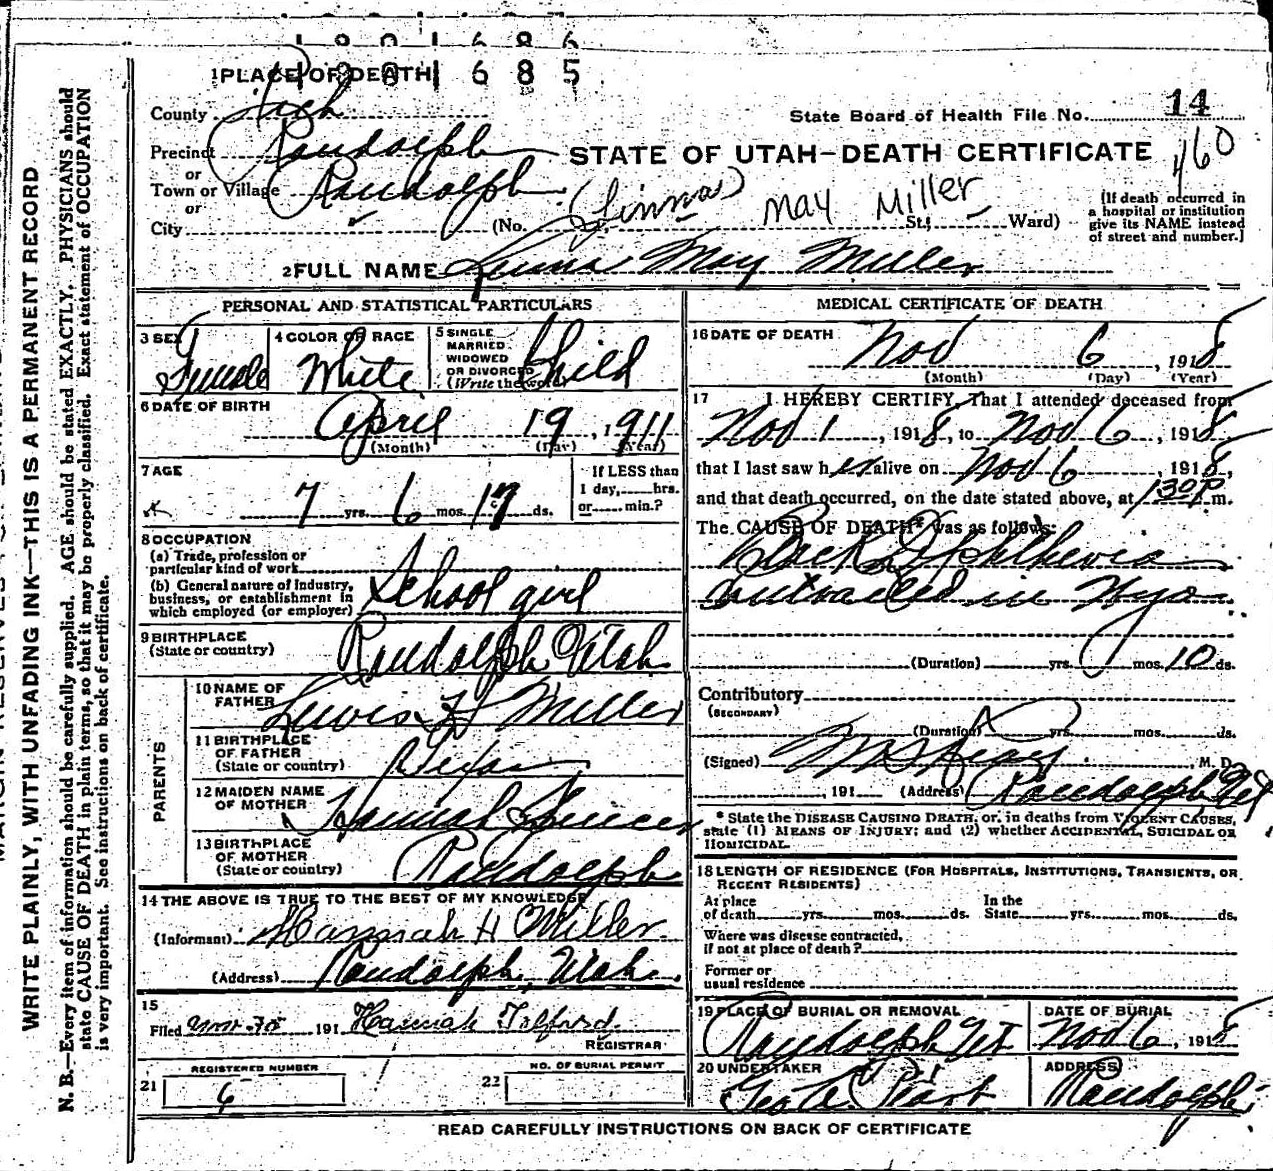 1801686
1801685
1 PLACE OF DEATH
County Rich
State Board of Health File No. 14
460
Precinct Randolph
STATE OF UTAH—DEATH CERTIFICATE
or
Town or Village Randolph
or
City (No. St; Ward)
(Linnas) May Miller
(If death occurred in a hospital or institution give its NAME instead of street and number.)
2 FULL NAME May Miller
PERSONAL AND STATISTICAL PARTICULARS
3 SEX Female
4 COLOR OR RACE White
5 SINGLE MARRIED WIDOWED OR DIVORCED (Write the word) Child
6 DATE OF BIRTH
April 19, 1911
(Month) (Day) (Year)
7 AGE
7 yrs. 6 mos. 17 ds.
If LESS than 1 day, hrs. or min.?
8 OCCUPATION
(a) Trade, profession or particular kind of work
(b) General nature of industry, business, or establishment in which employed (or employer) School girl
9 BIRTHPLACE
(State or country) Randolph Utah
PARENTS
10 NAME OF FATHER Lewis Miller
11 BIRTHPLACE OF FATHER
(State or country)
12 MAIDEN NAME OF MOTHER Hannah Spencer
13 BIRTHPLACE OF MOTHER
(State or country) Randolph
14 THE ABOVE IS TRUE TO THE BEST OF MY KNOWLEDGE
(Informant) Hannah H Miller
(Address) Randolph, Utah
15
Filed Nov. 30 191 Hannah Telford
REGISTRAR
REGISTERED NUMBER
21 6
NO. OF BURIAL PERMIT
22
MEDICAL CERTIFICATE OF DEATH
16 DATE OF DEATH
Nov 6, 1918
(Month) (Day) (Year)
17 I HEREBY CERTIFY, That I attended deceased from
Nov 1, 1918, to Nov 6, 1918
that I last saw her alive on Nov 6, 1918,
and that death occurred, on the date stated above, at 1:30 P. m.
The CAUSE OF DEATH* was as follows:
Black Diphtheria
contracted in Wyo.
(Duration) yrs. mos. 10 ds.
Contributory
(SECONDARY)
(Duration) yrs. mos. ds.
(Signed) M. D.
191 (Address) Randolph, Ut
* State the DISEASE CAUSING DEATH, or, in deaths from VIOLENT CAUSES,
state (1) MEANS OF INJURY; and (2) whether ACCIDENTAL, SUICIDAL OR
HOMICIDAL.
18 LENGTH OF RESIDENCE (FOR HOSPITALS, INSTITUTIONS, TRANSIENTS, OR
RECENT RESIDENTS)
At place of death yrs. mos. ds. In the State yrs. mos. ds.
Where was disease contracted,
if not at place of death?
Former or
usual residence
19 PLACE OF BURIAL OR REMOVAL
Randolph Ut
DATE OF BURIAL
Nov 6, 1918
20 UNDERTAKER
Geo A. Peart
ADDRESS
Randolph
READ CAREFULLY INSTRUCTIONS ON BACK OF CERTIFICATE
WRITE PLAINLY, WITH UNFADING INK—THIS IS A PERMANENT RECORD
N. B.—Every item of information should be carefully supplied. AGE should be stated EXACTLY. PHYSICIANS should
state CAUSE OF DEATH in plain terms, so that it may be properly classified. Exact statement of OCCUPATION
is very important. See instructions on back of certificate.